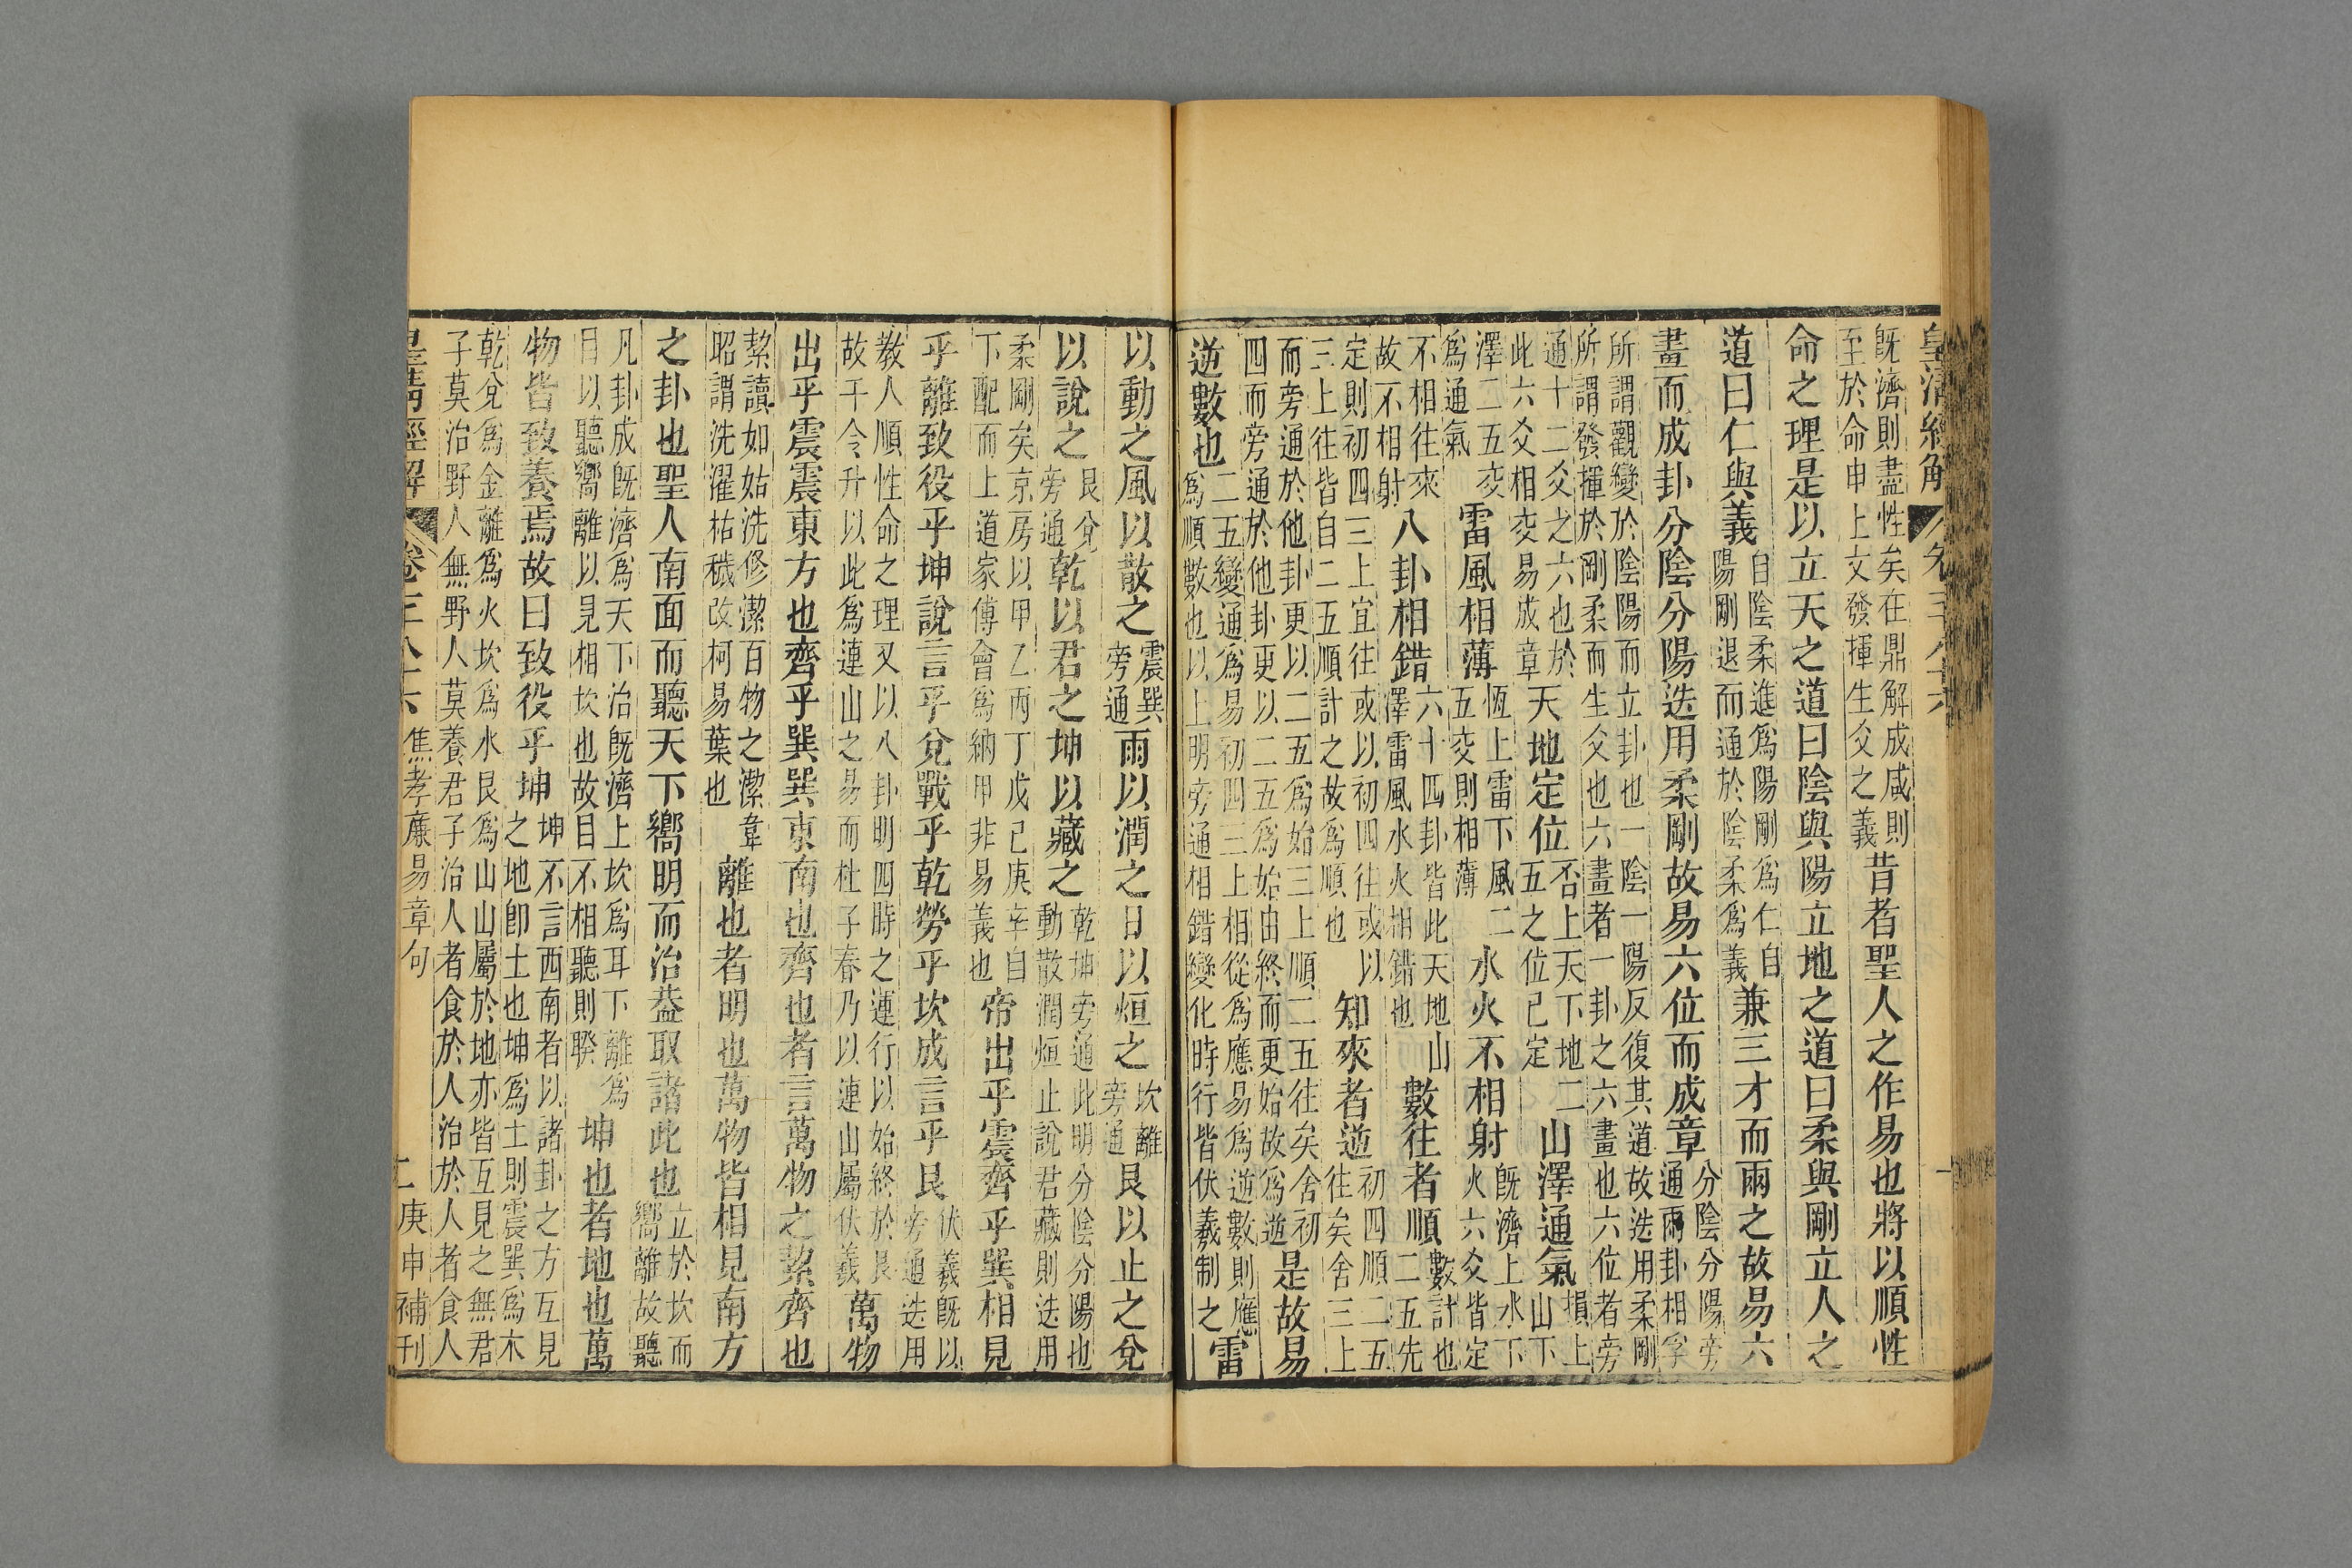 皇清經解 卷三八十六
既濟則盡性矣在鼎解成咸則
至於命申上文發揮生爻之義
昔者聖人之作易也將以順性
命之理是以立天之道曰陰與陽立地之道曰柔與剛立人之
道曰仁與義
自陰柔進爲陽剛爲仁自
陽剛退而通於陰柔爲義
兼三才而兩之故易六
畫而成卦分陰分陽迭用柔剛故易六位而成章
分陰分陽旁
通兩卦相孚
所謂觀變於陰陽而立卦也一陰一陽反復其道故迭用柔剛
所謂發揮於剛柔而生爻也六畫者一卦之六畫也六位者旁
通十二爻之六也於
此六爻相交易成章
天地定位
否上天下地二
五之位已定
山澤通氣
損上
山下
澤二五交
爲通氣
雷風相薄
恆上雷下風二
五交則相薄
水火不相射
既濟上水下
火六爻皆定
不相往來
故不相射
八卦相錯
六十四卦皆此天地山
澤雷風水火相錯也
數往者順
數計也
二五先
定則初四三上宜往或以初四往或以
三上往皆自二五順計之故爲順也
知來者逆
初四順二五
往矣舍三上
而旁通於他卦更以二五爲始三上順二五往矣舍初
四而旁通於他卦更以二五爲始由終而更始故爲逆
是故易
逆數也
二五變通爲易初四三上相從爲應易爲逆數則應
爲順數也以上明旁通相錯變化時行皆伏羲制之
雷
以動之風以散之
震巽
旁通
雨以潤之日以烜之
坎離
旁通
艮以止之兌
以說之
艮兌
旁通
乾以君之坤以藏之
乾坤旁通此明分陰分陽也
動散潤烜止說君藏則迭用
柔剛矣京房以甲乙丙丁戊己庚辛自
下配而上道家傅會爲納甲非易義也
帝出乎震齊乎巽相見
乎離致役乎坤說言乎兌戰乎乾勞乎坎成言乎艮
伏羲既以
旁通迭用
教人順性命之理又以八卦明四時之運行以始終於艮
故干令升以此爲連山之易而杜子春乃以連山屬伏羲
萬物
出乎震震東方也齊乎巽巽東南也齊也者言萬物之絜齊也
絜讀如姑洗修潔百物之潔韋
昭謂洗濯枯穢改柯易葉也
離也者明也萬物皆相見南方
之卦也聖人南面而聽天下嚮明而治葢取諸此也
立於坎而
嚮離故聽
凡卦成既濟爲天下治既濟上坎爲耳下離爲
目以聽嚮離以見相坎也故目不相聽則睽
坤也者地也萬
物皆致養焉故曰致役乎坤
坤不言西南者以諸卦之方互見
之地卽土也坤爲土則震巽爲木
乾兌爲金離爲火坎爲水艮爲山山屬於地亦皆互見之無君
子莫治野人無野人莫養君子治人者食於人治於人者食人
皇清經解 卷三八十六 焦孝廉易章句 二 庚申補刊